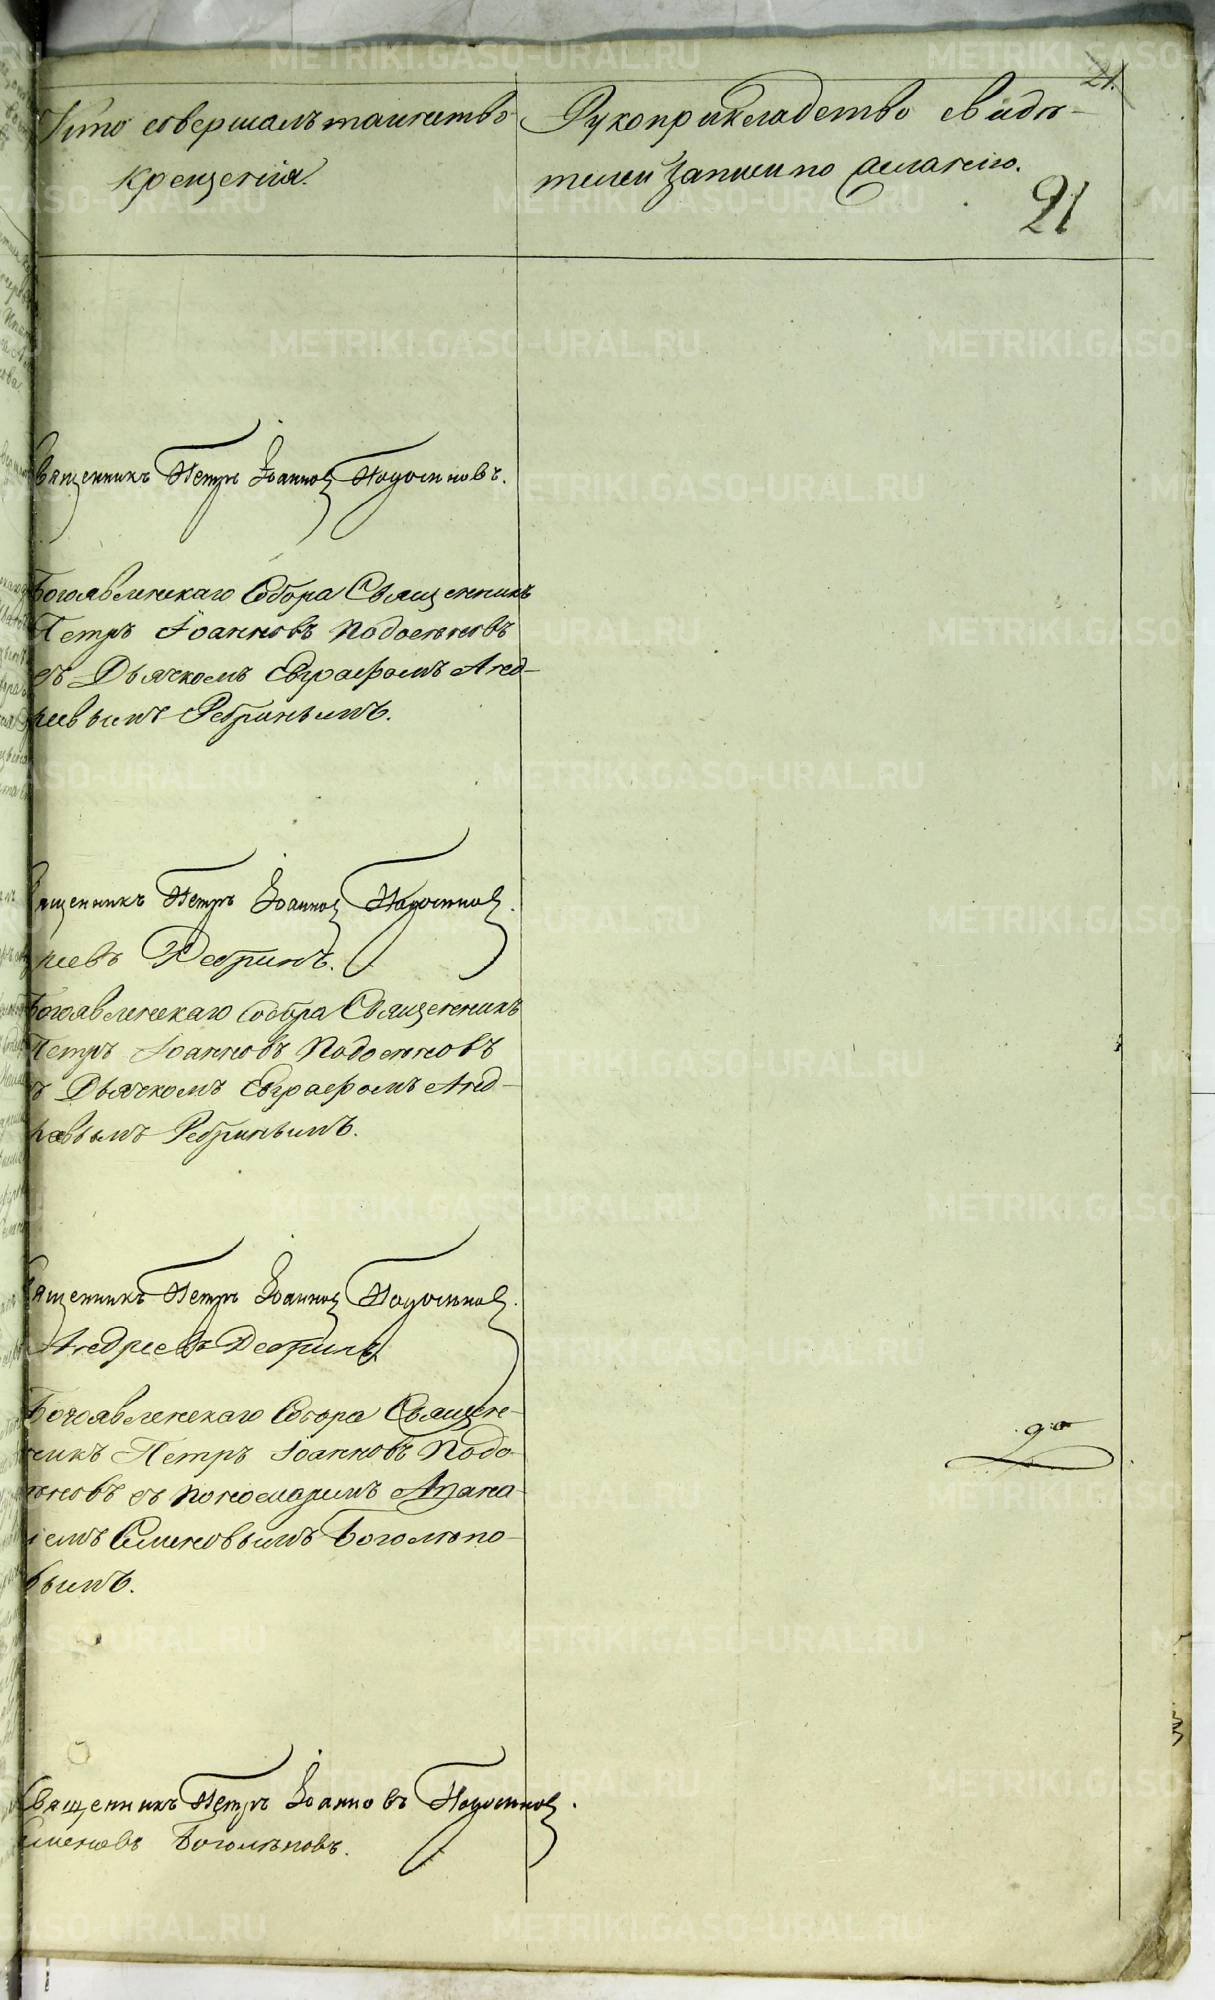 21.
Кто совершалъ таинство
крещенія.
Рукоприкладство свидѣ-
телей записи по желанію.
21
Священникъ Петръ Іоанновъ Подосеновъ.
Богоявленскаго Собора Священникъ
Петръ Іоанновъ Подосеновъ
съ Дьячкомъ Евграфомъ Анд-
реевымъ Ребринымъ.
Священникъ Петръ Іоанновъ Подосеновъ.
реевъ Ребринъ.
Богоявленскаго собора Священникъ
Петръ Іоанновъ Подосеновъ
съ Дьячкомъ Евграфомъ Анд-
реевымъ Ребринымъ.
Священникъ Петръ Іоанновъ Подосеновъ.
Андреевъ Ребринъ
Богоявленскаго Собора Священ-
никъ Петръ Іоанновъ Подо-
сеновъ съ пономаремъ Афана-
сіемъ Семеновымъ Боголѣпо-
вымъ.
Священникъ Петръ Іоанновъ Подосеновъ.
Семеновъ Боголѣповъ.